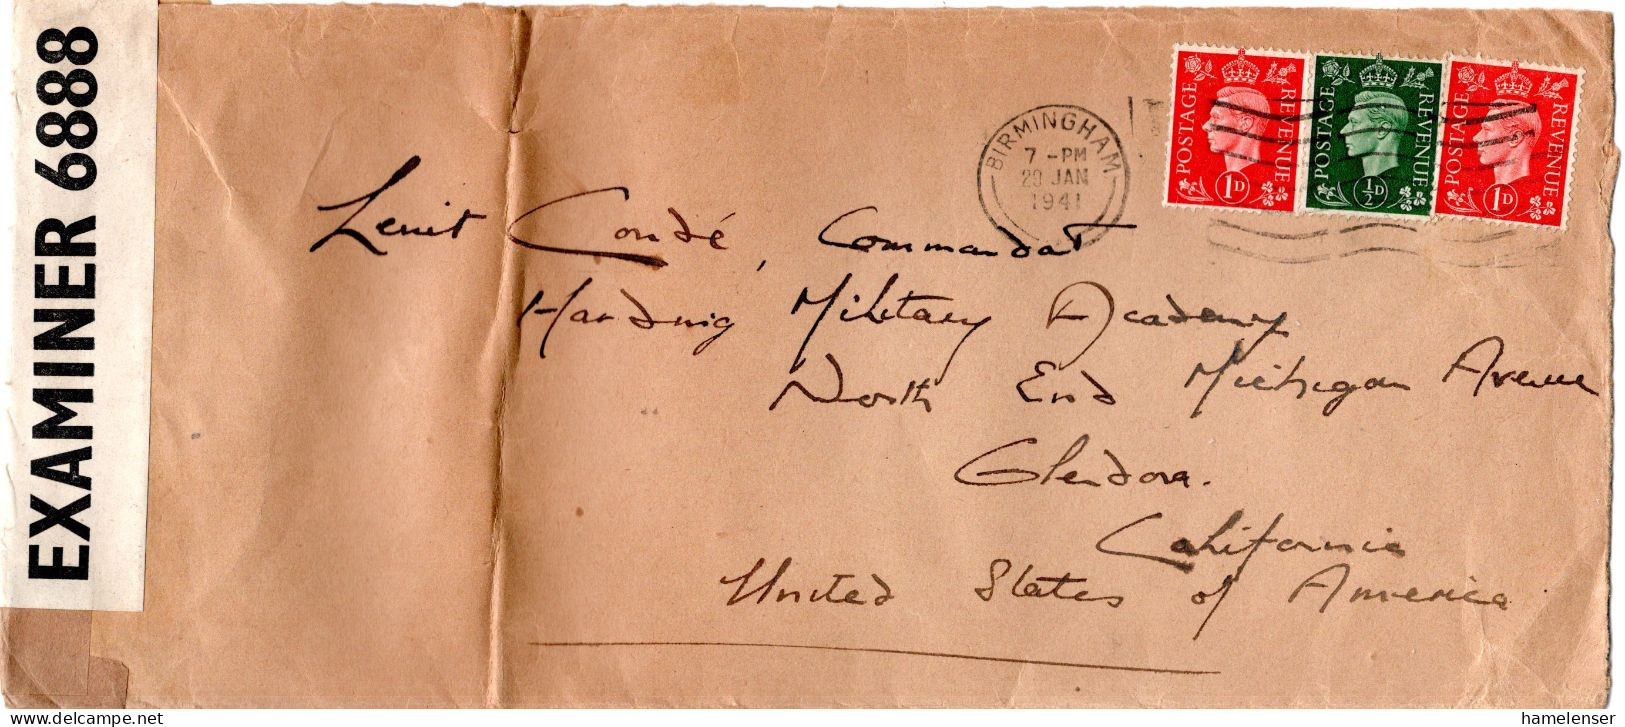 EXAMINER 6888
BIRMINGHAM
7 - PM
29 JAN
1941
POSTAGE REVENUE
1D
POSTAGE REVENUE
½D
POSTAGE REVENUE
1D
Condé, Commandat
Military Academy
North End Michigan Avenue
Glendora.
California
United States of America
www.delcampe.net
hamelenser